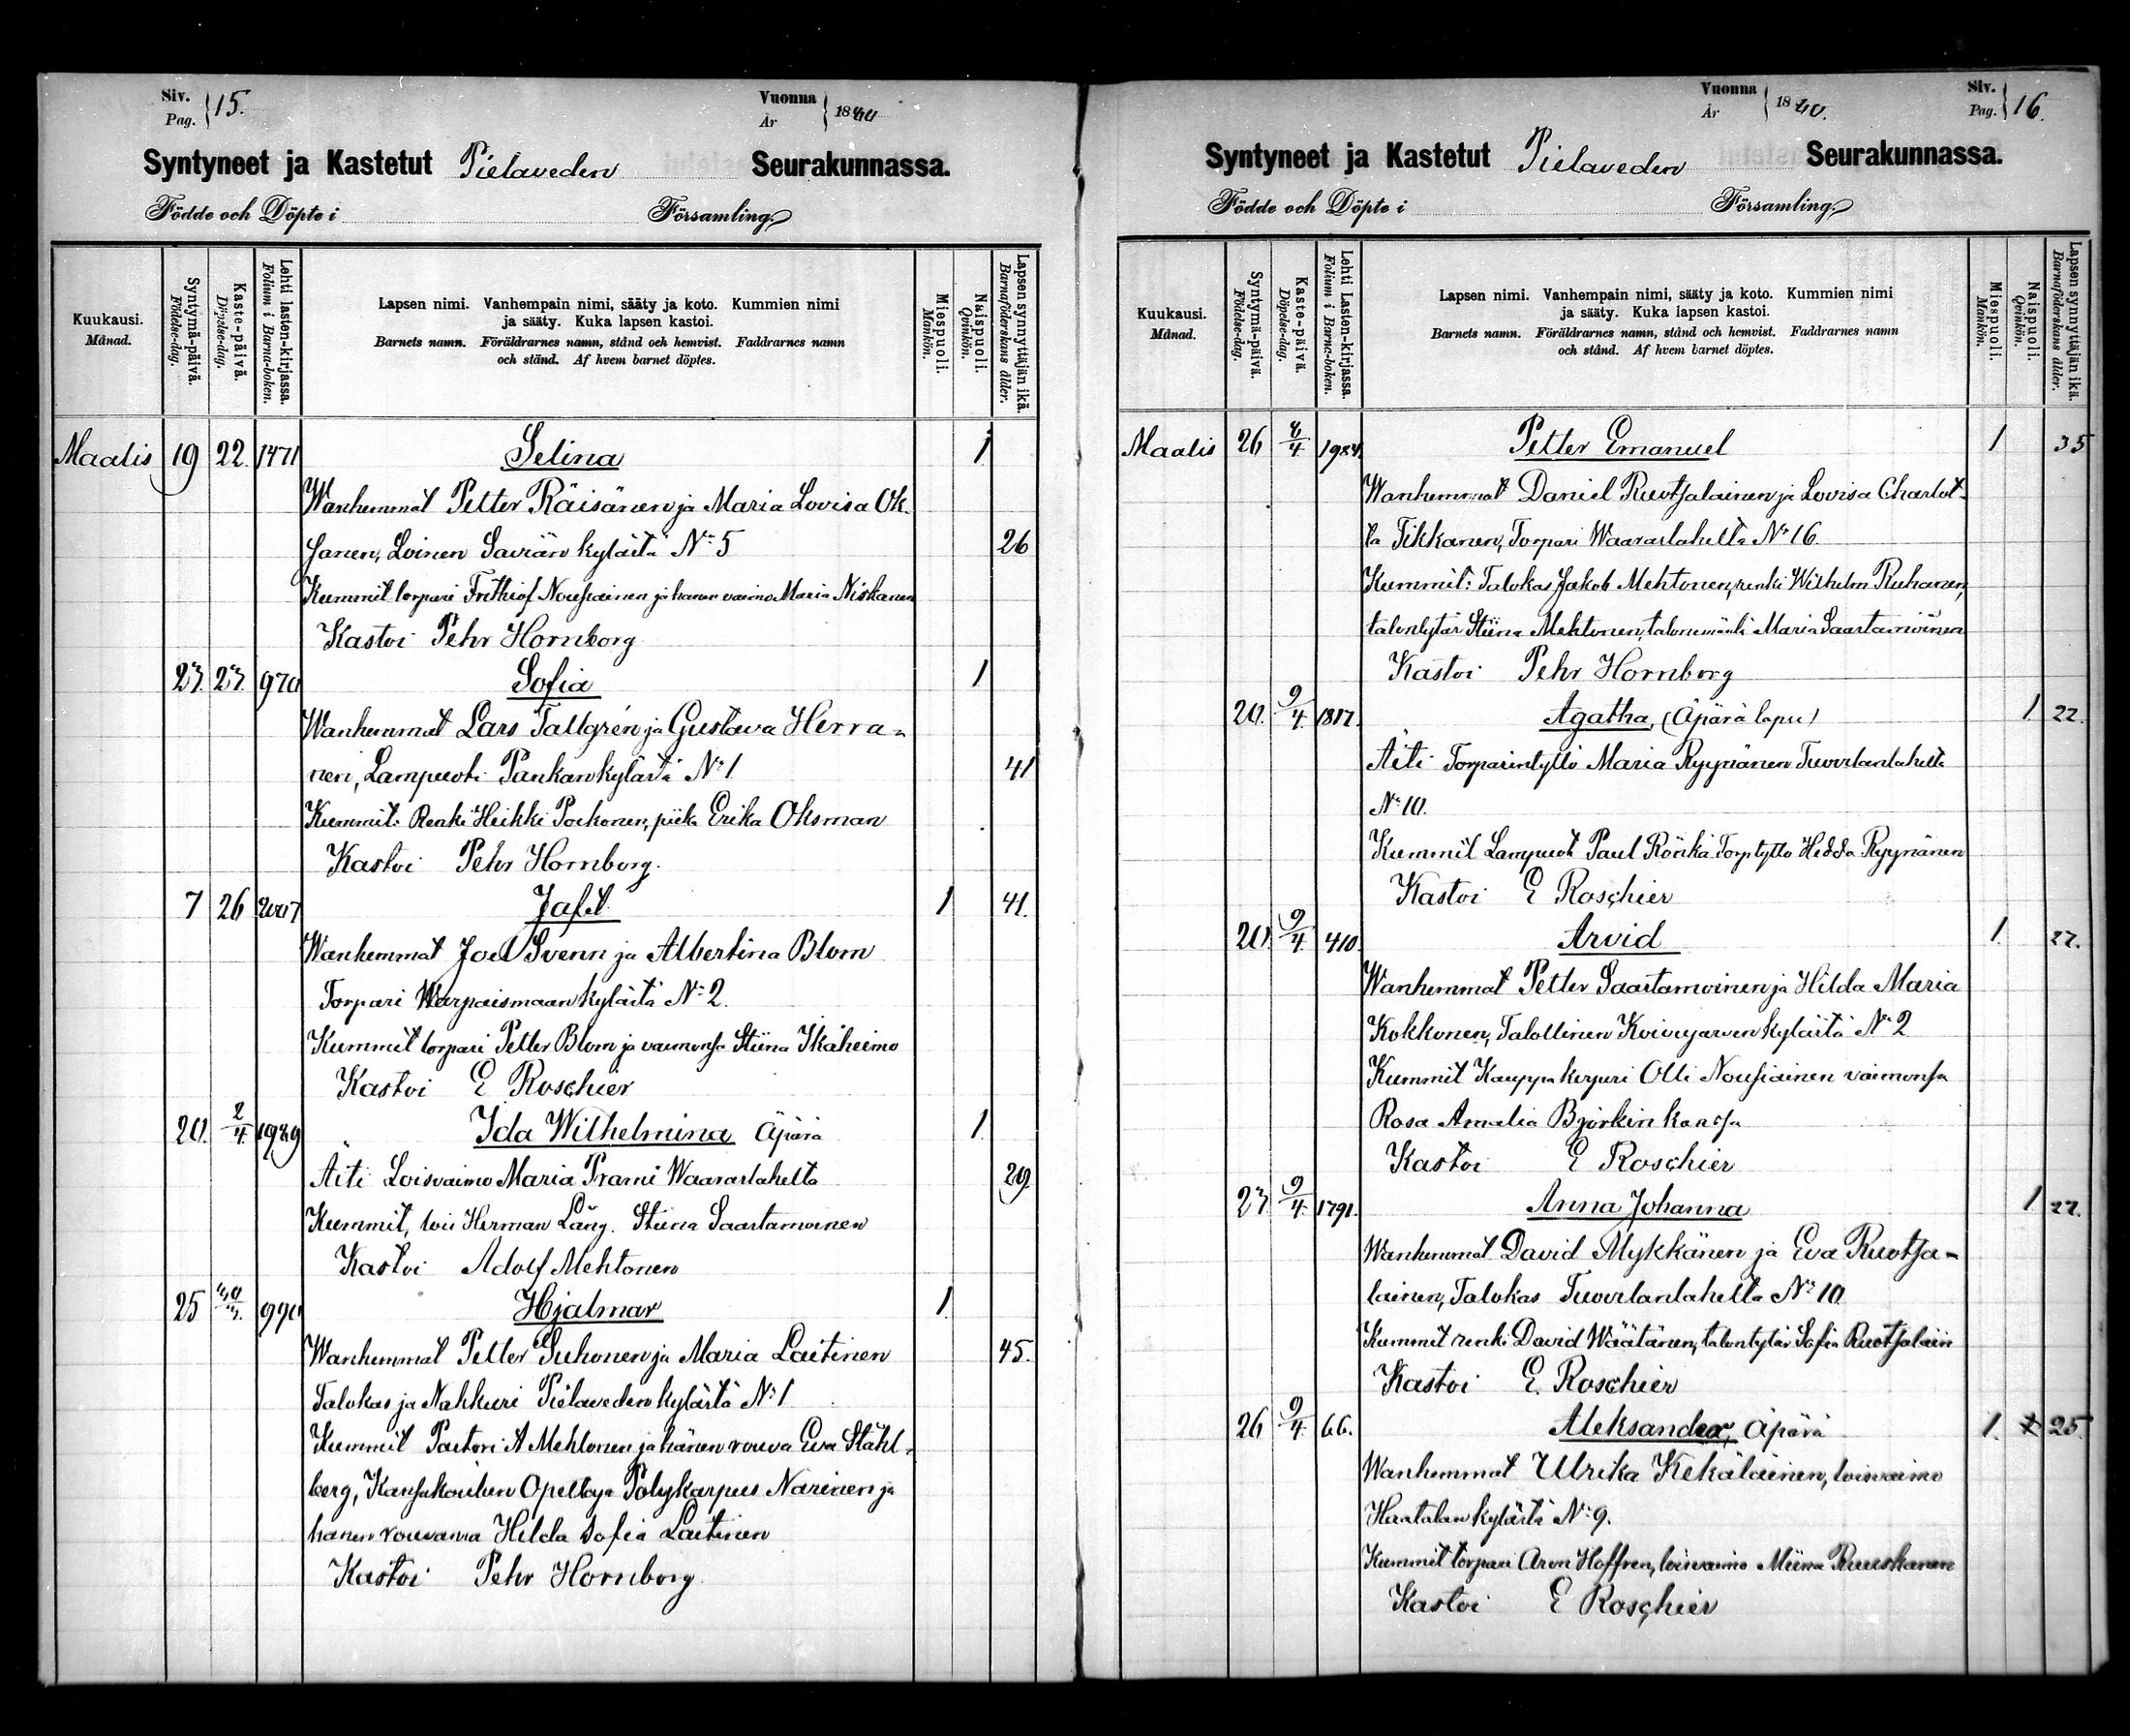 Siv. Pag. 15.
Vuonna År 18
Syntyneet ja Kastetut Pielaveden Seurakunnassa.
Födde och Döpte i Församling
Kuukausi. Månad.
Syntymä-päivä. Födelse-dag.
Kaste-päivä. Döpelse-dag.
Lehti lasten-kirjassa. Folium i Barna-boken.
Lapsen nimi. Vanhempain nimi, sääty ja koto. Kummien nimi
ja sääty. Kuka lapsen kastoi.
Barnets namn. Föräldrarnes namn, stånd och hemvist. Faddrarnes namn
och stånd. Af hvem barnet döptes.
Miespuoli. Mankön.
Naispuoli. Qvinkön.
Lapsen synnyttäjän ikä. Barnaföderskans ålder.
Maalis 19 22. 1471 Selina 1
Wanhemmat Petter Räisänen ja Maria Lovisa Ok-
sanen, Loinen Saviän kylästä N:o 5 26
Kummit torpari Frithiof Nousiainen ja hänen vaimo Maria Niskanen
Kastoi Pehr Hornborg
23. 23. 970 Sofia 1.
Wanhemmat Lars Tallgrén ja Gustava Herra-
nen, Lampuoti Pankan kylästä N:o 1 41
Kummit: Renki Heikki Poikonen, piika Erika Oksman
Kastoi Pehr Hornborg.
7 26 2007 Jafet 1 41.
Wanhemmat Joel Svenn ja Albertina Blom
Torpari Warpaismaan kylästä N:o 2.
Kummit torpari Petter Blom ja vaimonsa Stiina Ikäheimo
Kastoi E Roschier
20. 2/4. 1989 Ida Wilhelmina Äpärä 1.
Äiti Loisvaimo Maria Prami Waaraslahelta 29.
Kummit, lois Herman Läng. Stiina Saastamoinen
Kastoi Adolf Mehtonen
25 30/3. 990 Hjalmar 1.
Wanhemmat Petter Suhonen ja Maria Laitinen 45.
Talokas ja Nahkuri Pielaveden kylästä N:o 1
Kummit Pastori A Mehtonen ja hänen rouva Eva Ståhl-
berg, Kansakoulun Opettaja Polykarpus Narinen ja
hänen rouvansa Hilda Sofia Laitinen
Kastoi Pehr Hornborg.
Vuonna År 18
Siv. Pag. 16.
Syntyneet ja Kastetut Pielaveden Seurakunnassa.
Födde och Döpte i Församling
Kuukausi. Månad.
Syntymä-päivä. Födelse-dag.
Kaste-päivä. Döpelse-dag.
Lehti Lasten-kirjassa. Folium i Barna-boken.
Lapsen nimi. Vanhempain nimi, sääty ja koto. Kummien nimi
ja sääty. Kuka lapsen kastoi.
Barnets namn. Föräldrarnes namn, stånd och hemvist. Faddrarnes namn
och stånd. Af hvem barnet döptes.
Miespuoli. Mankön.
Naispuoli. Qvinkön.
Lapsen synnyttäjän ikä. Barnaföderskans ålder.
Maalis 26 8/4 1984. Petter Emanuel 1 35
Wanhemmat Daniel Ruotsalainen ja Lovisa Charlot-
ta Tikkanen, Torpari Waaraslahelta N:o 16
Kummit: Talokas Jakob Mehtonen, renki Wilhelm Ruhanen,
talontytär Stiina Mehtonen, talonemäntä Maria Saastamoinen
Kastoi Pehr Hornborg
20. 9/4. 1817. Agatha, (Äpärä lapsi) 1. 22.
Äiti Torparintyttö Maria Ryynänen Tuovilanlahelta
N:o 10.
Kummit Lampuoti Paul Rönkä Torp.tyttö Hedda Ryynänen
Kastoi E Roschier
20. 9/4. 410. Arvid 1. 27.
Wanhemmat Petter Saastamoinen ja Hilda Maria
Kokkonen, Talollinen Koivujärven kylästä N:o 2
Kummit Kauppa Olli Nousiainen vaimonsa
Rosa Amalia Björkin kanssa
Kastoi E Roschier
23 9/4. 1791. Anna Johanna 1 27.
Wanhemmat David Mykkänen ja Eva Ruotsa-
lainen, Talokas Tuovilanlahelta N:o 10
Kummit renki David Wäätänen, talontytär Sofia Ruotsalain
Kastoi E. Roschier
26 9/4. 66. Aleksander, Äpärä 1. 25.
Wanhemmat Ulrika Kekäläinen, loisvaimo
Haatalan kylästä N:o 9.
Kummit torpari Aron Hoffren, loisvaimo Miina Ruuskanen
Kastoi E Roschier